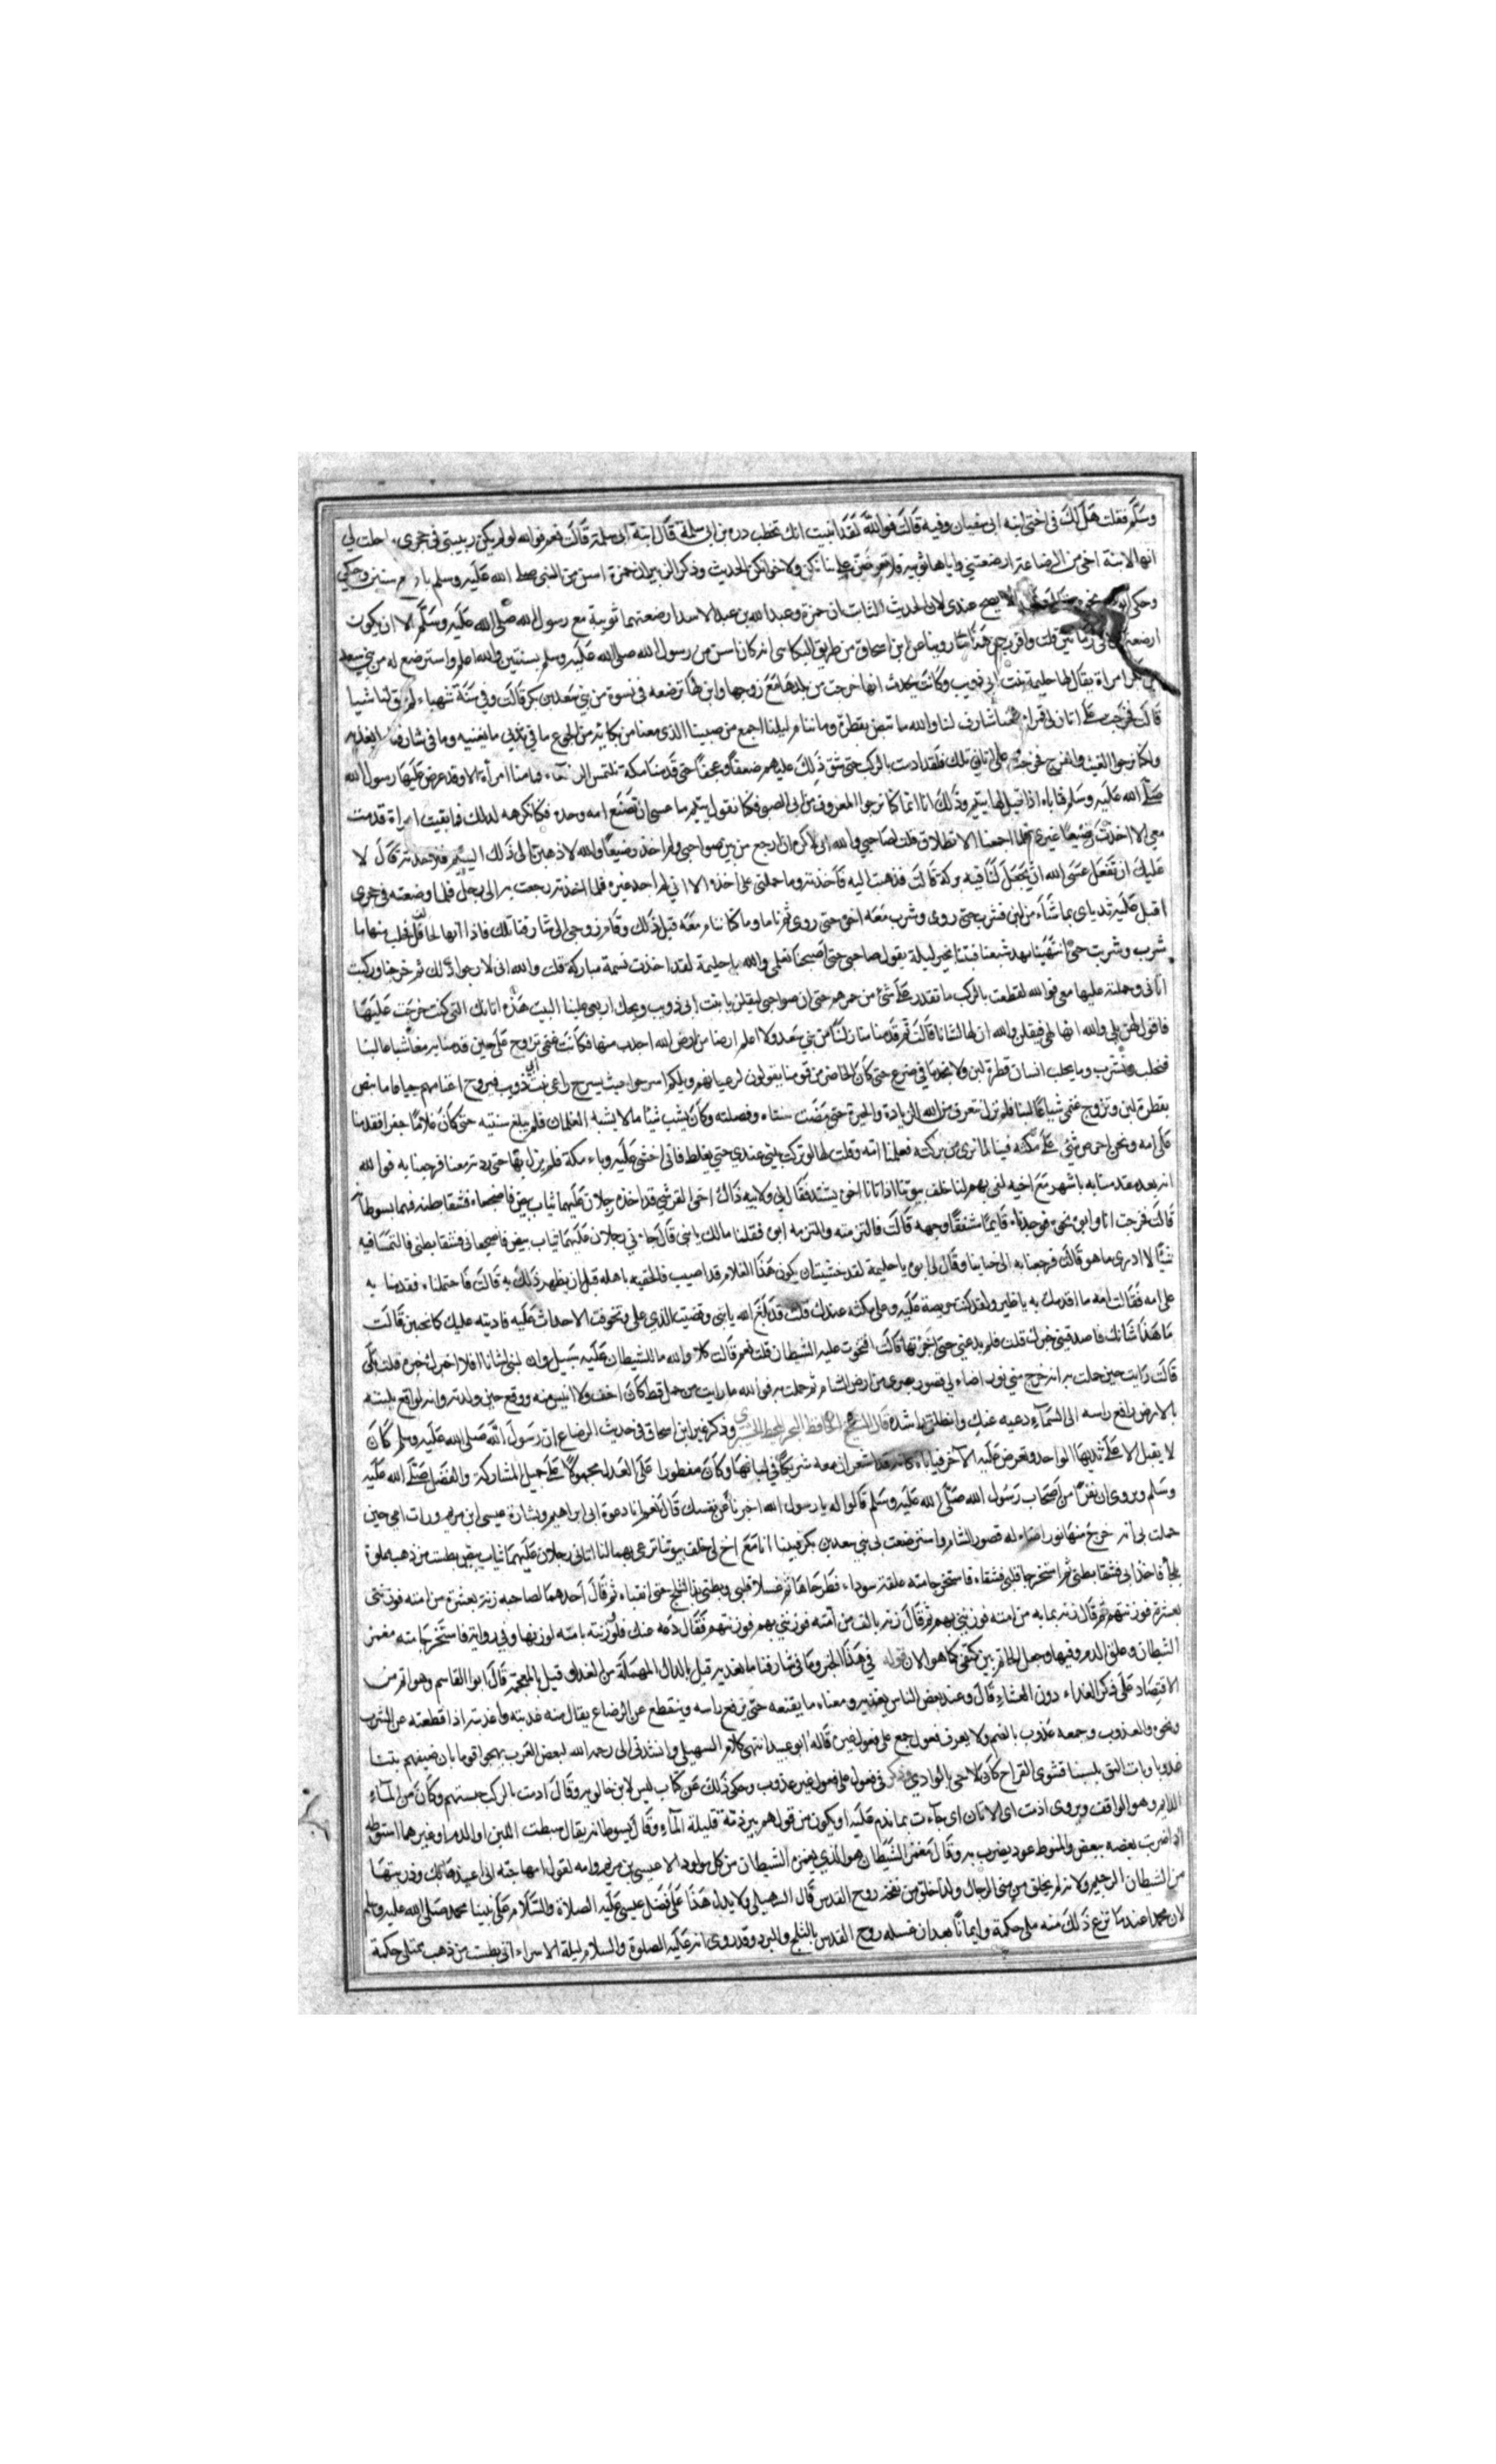 وسلم فقلت هل لك في اختي ابنة ابي سفيان وفيه قالت فوالله لقد انبيت انك تخطب درة بنت ابي سلمة قال ابنة ابي سلمة قالت نعم فوالله لو لم يكن ربيبتي في حجري ما حلت لي
انها لابنة اخي من الرضاعة ارضعتني واياها ثويبة فلا تعرضن علي بناتكن ولا اخواتكن الحديث وذكر الزبير ان حمزة اسن من النبي صلى الله عليه وسلم باربع سنين وحكى
وحكى ابو عمر نحوه وقال هذا لا يصح عندي لان الحديث الثابت ان حمزة وعبد الله بن عبد الاسد ارضعتهما ثويبة مع رسول الله صلى الله عليه وسلم الا ان يكون
ارضعتهما في زمانين قلت واقرب من هذا ما روينا عن ابن اسحاق من طريق البكائي انه كان اسن من رسول الله صلى الله عليه وسلم بسنتين والله اعلم واسترضع له من بني سعد
بن بكر امراة يقال لها حليمة بنت ابي ذويب وكانت تحدث انها خرجت من بلدها مع زوجها وابن لها ترضعه في نسوة من بني سعد بن بكر قالت وفي سنة شهباء لم تبق لنا شيا
قالت فخرجت على اتان لي قمراء معنا شارف لنا والله ما تبض بقطرة وما ننام ليلنا اجمع من صبينا الذي معنا من بكائه من الجوع ما في ثديي ما يغنيه وما في شارفنا ما يغديه
ولكنا نرجوا الغيث والفرج فخرجت على اتاني تلك فلقد ادمت بالركب حتى شق ذلك عليهم ضعفا وعجفا حتى قدمنا مكة نلتمس الرضعاء فما منا امرأة الا وقد عرض عليها رسول الله
صلى الله عليه وسلم فتاباه اذا قيل لها يتيم وذلك انا انما كنا نرجوا المعروف من ابي الصبي فكنا نقول يتيم ما عسى ان تصنع امه وجده فكنا نكرهه لذلك فما بقيت امراة قدمت
معي الا اخذت رضيعا غيري فلما اجمعنا الانطلاق قلت لصاحبي والله اني لاكره ان ارجع من بين صواحبي ولم اخذ رضيعا والله لاذهبن الى ذلك اليتيم فلاخذنه قال لا
عليك ان تفعلي عسى الله ان يجعل لنا فيه بركة قالت فذهبت اليه فاخذته وما حملني على اخذه الا اني لم اجد غيره فلما اخذته رجعت به الى رحلي فلما وضعته في حجري
اقبل عليه ثدياي بما شاء من لبن فشرب حتى روي وشرب معه اخوه حتى روي ثم ناما وما كنا ننام معه قبل ذلك وقام زوجي الى شارفنا تلك فاذا انها لحافل فحلب منها ما
شرب وشربت حتى انتهينا ريا وشبعا فبتنا بخير ليلة يقول صاحبي حين اصبحنا تعلمي والله يا حليمة لقد اخذت نسمة مباركة قلت والله اني لارجوا ذلك ثم خرجنا وركبت
اتاني وحملته عليها معي فوالله لقطعت بالركب ما تقدر على شئ من حمرهم حتى ان صواحبي ليقلن يا بنت ابي ذويب ويحك اربعي علينا اليست هذه اتانك التي كنت خرجت عليها
فاقول لهن بلى والله انها لهي فيقلن والله ان لها لشانا قالت ثم قدمنا منازلنا من بني سعد ولا اعلم ارضا من ارض الله اجدب منها فكانت غنمي تروح علي حين قدمنا به معنا شباعا لبنا
فنحلب ونشرب وما يحلب انسان قطرة لبن ولا يجدها في ضرع حتى كان الحاضر من قومنا يقولون لرعيانهم ويلكم اسرحوا حيث يسرح راعي بنت ابي ذويب فتروح اغنامهم جياعا ما تبض
بقطرة لبن وتروح غنمي شباعا لبنا فلم نزل نتعرف من الله الزيادة والخيرة حتى مضت سنتاه وفصلته وكان يشب شبابا لا يشبه الغلمان فلم يبلغ سنتيه حتى كان غلاما جفرا فقدمنا
على امه ونحن احرص شئ على مكثه فينا لما نرى من بركته فكلمنا امه وقلت لها لو تركت بني عندي حتى يغلظ فاني اخشى عليه وباء مكة فلم نزل بها حتى ردته معنا فرجعنا به فوالله
انه بعد مقدمنا به باشهر مع اخيه لفي بهم لنا خلف بيوتنا اذ اتانا اخوه يشتد فقال لي ولابيه ذاك اخي القرشي قد اخذه رجلان عليهما ثياب بيض فاضجعاه فشقا بطنه فهما يسوطانه
قالت فخرجت انا وابوه نحوه فوجدناه قائما منتقعا وجهه قالت فالتزمته والتزمه ابوه فقلنا ما لك يا بني قال جاءني رجلان عليهما ثياب بيض فاضجعاني فشقا بطني فالتمسا فيه
شيا لا ادري ما هو قالت فرجعنا به الى خباينا وقال لي ابوه يا حليمة لقد خشيت ان يكون هذا الغلام قد اصيب فالحقيه باهله قبل ان يظهر ذلك به قالت فاحتملناه فقدمنا به
على امه فقالت امه ما اقدمك به يا ظير ولقد كنت حريصة عليه وعلى مكثه عندك قلت قد بلغ الله يا بني وقضيت الذي علي وتخوفت الاحداث عليه فاديته عليك كما تحبين قالت
ما هذا شانك فاصدقيني خبرك قلت فلم تدعني حتى اخبرتها قالت افتخوفت عليه الشيطان قلت نعم قالت كلا والله ما للشيطان عليه سبيل وان لبني لشانا افلا اخبرك خبره قلت بلى
قالت رايت حين حملت به انه خرج مني نور اضاء لي قصور بصرى من ارض الشام ثم حملت به فوالله ما رايت من حمل قط كان اخف ولا ايسر منه ووقع حين ولدته وانه لواضع يديه
بالارض رافع راسه الى السماء دعيه عنك وانطلقي راشدة قال الشيخ الحافظ وذكر غير ابن اسحاق في حديث الرضاع ان رسول الله صلى الله عليه وسلم كان
لا يقبل الا على ثديها الواحد وتعرض عليه الآخر فياباه كانه قد اشعر ان معه شريكا في لبانها وكان مفطورا على العدل مجبولا على جميل المشاركة والفضل صلى الله عليه
وسلم ويروى ان نفرا من اصحاب رسول الله صلى الله عليه وسلم قالوا له يا رسول الله اخبرنا عن نفسك قال نعم انا دعوة ابي ابراهيم وبشارة عيسى ابن مريم ورات امي حين
حملت بي انه خرج منها نور اضاء له قصور الشام واسترضعت في بني سعد بن بكر فبينا انا مع اخ لي خلف بيوتنا نرعى بهما لنا اتاني رجلان عليهما ثياب بيض بطست من ذهب مملوة
ثلجا فاخذاني فشقا بطني ثم استخرجا قلبي فشقاه فاستخرجا منه علقة سوداء فطرحاها ثم غسلا قلبي وبطني بذلك الثلج حتى انقياه ثم قال احدهما لصاحبه زنه بعشرة من امته فوزنني
بعشرة فوزنتهم ثم قال زنه بماية من امته فوزنني بهم ثم قال زنه بالف من امته فوزنني بهم فوزنتهم فقال دعه عنك فلو وزنته بامته لوزنها وفي رواية فاستخرجا منه مغمز
الشيطان وعلق الدم وفيها وجعل الخاتم بين كتفي كما هو الان قوله في هذا الخبر وما في شارفنا ما يغديه قيل بالدال المهملة من الغداء وقيل بالمعجمة قال ابو القاسم وهو اتم من
الاقتصار على ذكر الغداء دون العشاء قال وعند بعض الناس يعذبه ومعناه ما يقنعه حتى يرفع راسه وينقطع عن الرضاع يقال منه عذبته واعذبته اذا قطعته عن الشرب
ونحوه والعذوب وجمعه عذوب بالضم ولا يعرف فعول جمع على فعول غيره قاله ابو عبيد انتهى كلام السهيلي وانشدني ابي رحمه الله لبعض العرب يهجو قوما بات ضيفهم بتنا
عذوبا وبات البق يلسبنا نشوي القراح كان لا حي بالوادي وذكر في فعول على فعول غير عذوب وحكى ذلك عن كتاب ليس لابن خالويه وقال ادمت بالركب حبستهم وكأن من الماء
الدايم وهو الواقف ويروى اذمت اي الاتان اي جاءت بما تذم عليه او يكون من قولهم بير ذمة قليلة الماء وقال يسوطانه يقال سطت اللبن او الدم او غيرهما اسوطه
اذا ضربت بعضه ببعض والمسوط عود يضرب به وقال مغمز الشيطان هو الذي يغمزه الشيطان من كل مولود الا عيسى بن مريم وامه لقول امها حنة اني اعيذها بك وذريتها
من الشيطان الرجيم ولانه لم يخلق من مني الرجال وانما خلق من نفخة روح القدس قال السهيلي ولا يدل هذا على فضل عيسى عليه الصلاة والسلام على نبينا محمد صلى الله عليه وسلم
لان محمدا عندما نزع ذلك منه ملئ حكمة وايمانا بعد ان غسله روح القدس بالثلج والبرد وقد روي انه عليه الصلوة والسلام ليلة الاسراء اتي بطست من ذهب ممتلئ حكمة